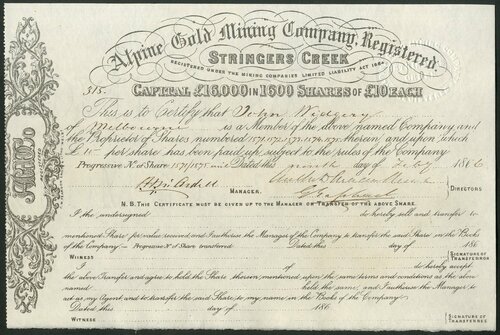 Alpine Gold Mining Company, Registered.
STRINGERS CREEK
REGISTERED UNDER THE MINING COMPANIES LIMITED LIABILITY ACT 1864
CAPITAL £16,000 IN 1600 SHARES OF £10 EACH
This is to Certify that John Widgery
of Melbourne is a Member of the above named Company and
the Proprietor of Shares numbered 1571, 1572, 1573, 1574, 1575, therein and upon which
£ per share has been paid up, subject to the rules of the Company
Progressive No. of Share 1571/1575 Dated this ninth day of 1866
MANAGER.
DIRECTORS
N.B. THIS CERTIFICATE MUST BE GIVEN UP TO THE MANAGER ON TRANSFER OF THE ABOVE SHARE.
I the undersigned do hereby sell and transfer to
mentioned Share for value received and I authorise the Manager of the Company to transfer the said Share in the Books
of the Company — Progressive No. of Share transferred Dated this day of 186
WITNESS
SIGNATURE OF TRANSFEROR
I of do hereby accept
the above Transfer and agree to hold the Share therein mentioned upon the same terms and conditions as the above
named held the same, and I authorise the Manager to
act as my Agent and to transfer the said Share to my name in the Books of the Company.
Dated this day of 186
WITNESS
SIGNATURE OF TRANSFEREE